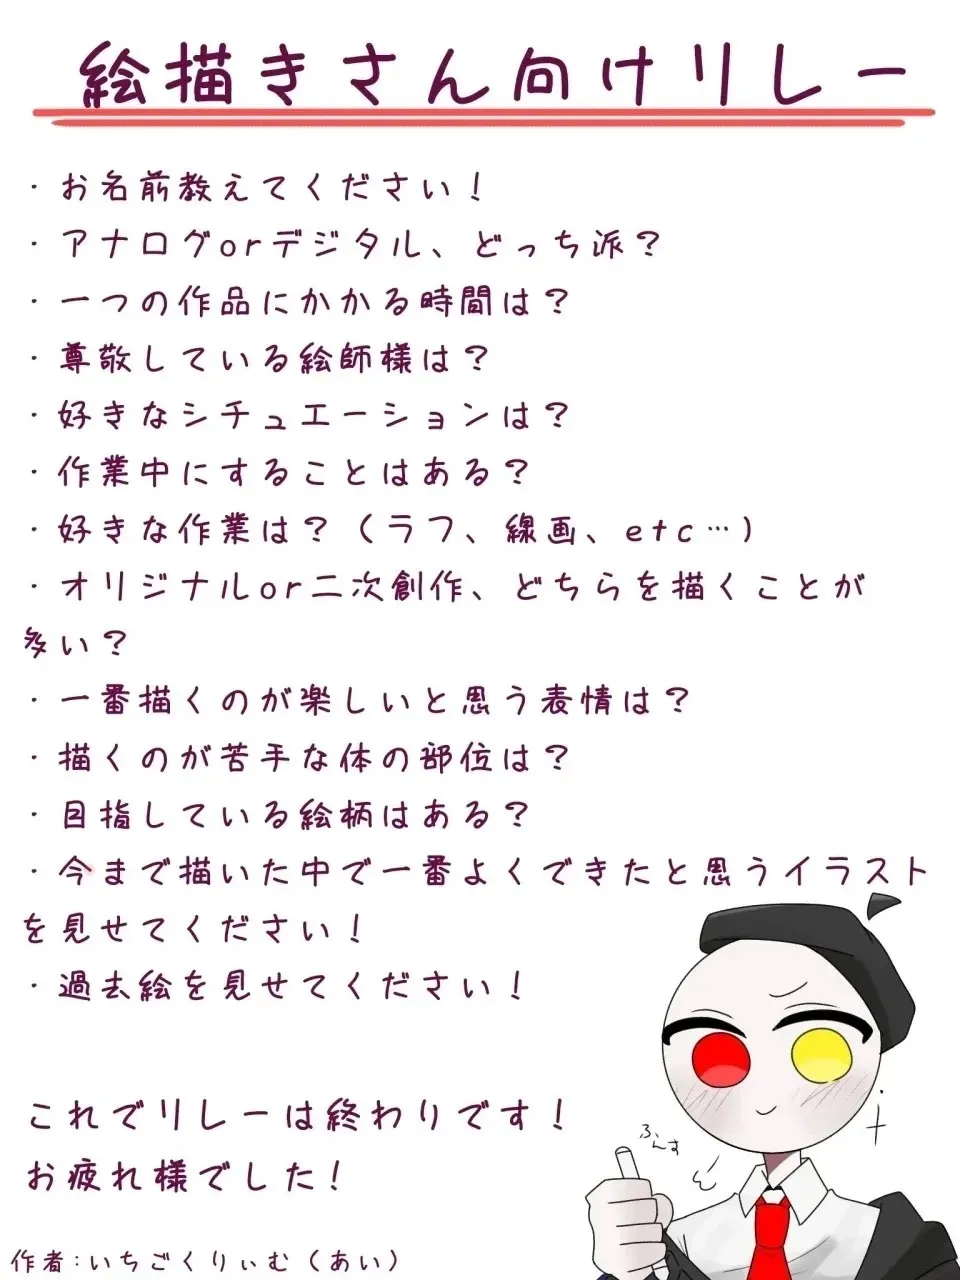 絵描きさん向けリレー
・お名前教えてください！
・アナログorデジタル、どっち派？
・一つの作品にかかる時間は？
・尊敬している絵師様は？
・好きなシチュエーションは？
・作業中にすることはある？
・好きな作業は？（ラフ、線画、etc…）
・オリジナルor二次創作、どちらを描くことが
多い？
・一番描くのが楽しいと思う表情は？
・描くのが苦手な体の部位は？
・目指している絵柄はある？
・今まで描いた中で一番よくできたと思うイラスト
を見せてください！
・過去絵を見せてください！
これでリレーは終わりです！
お疲れ様でした！
ふんす
作者:いちごくりぃむ（あい）